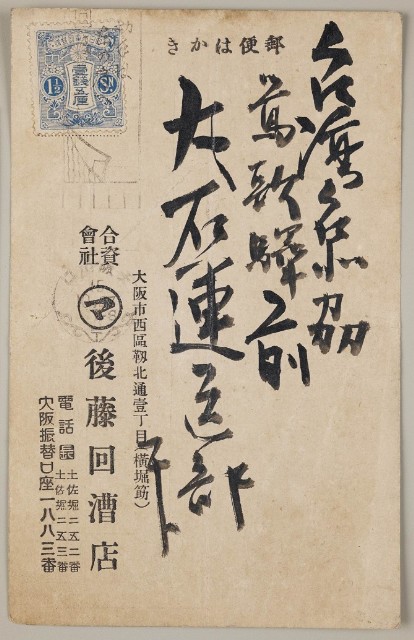 郵便はかき
台湾台北州
鶯歌驛前
大石運送部
大阪市西區靱北通壹丁目(横堀筋)
合資
會社
マ
後藤回漕店
電話
土佐堀二五二番
土佐堀二五三番
大阪振替口座一八八三番
壹錢五厘
1½ Sn.